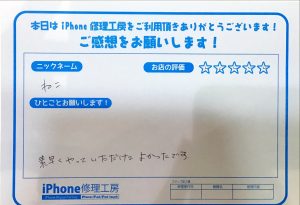 本日は iPhone 修理工房をご利用頂きありがとうございます!
ご感想をお願いします!
ニックネーム
お店の評価 ☆☆☆☆☆
ねこ
ひとことお願いします!
素早くやっていただけてよかったです
iPhone修理工房